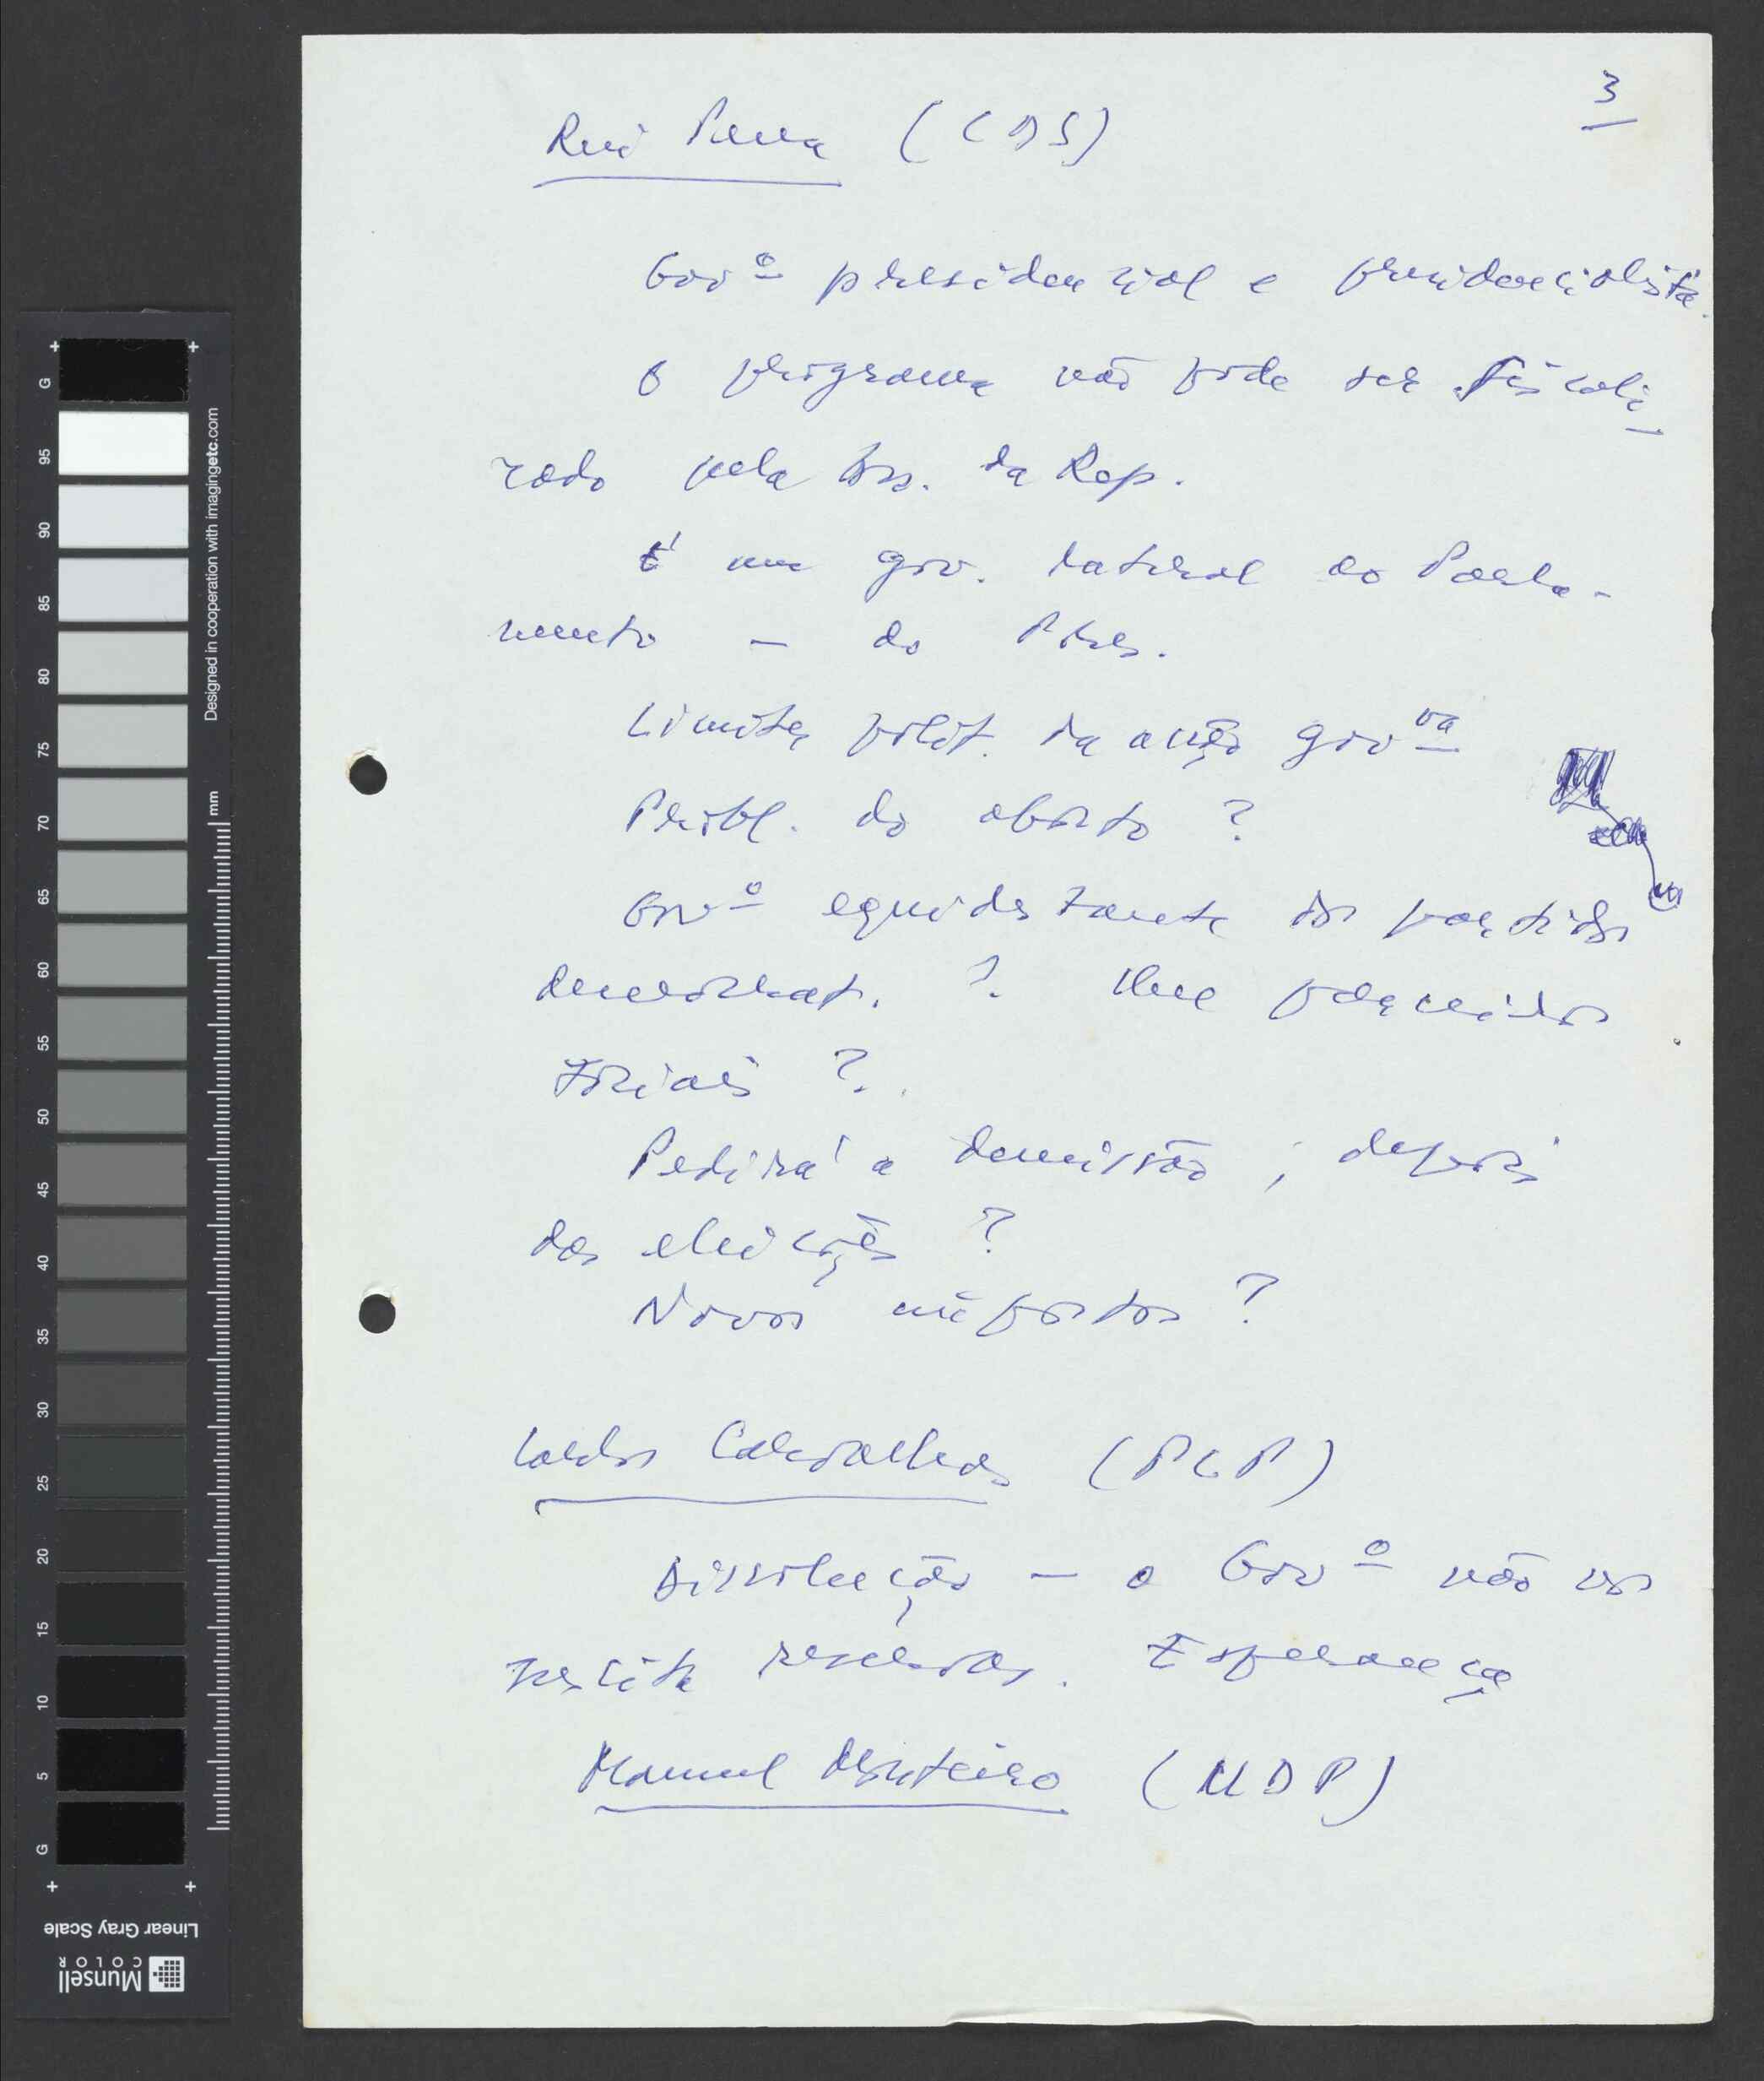 3
Rui Pena (CDS)
Govº presidencial e presidencialista.
O programa não pode ser fiscali-
zado pela Ass. da Rep.
É um gov. lateral ao Parla-
mento — do Pres.
Limites polít. da acção govva
Probl. do aborto?
Govº equidistante dos partidos
democrat. ?. Um
?.
Pedirá a demissão, depois
das eleições ?
Novos impostos ?
Carlos Carvalhas (PCP)
Dissolução — o Govº não
reservas. Esperança
Manuel Monteiro (MDP)
G 95 90 85 80 75 70 65 60 55 50 45 40 35 30 25 20 15 10 5 G
mm
Designed in cooperation with imagingetc.com
Linear Gray Scale
Munsell
COLOR